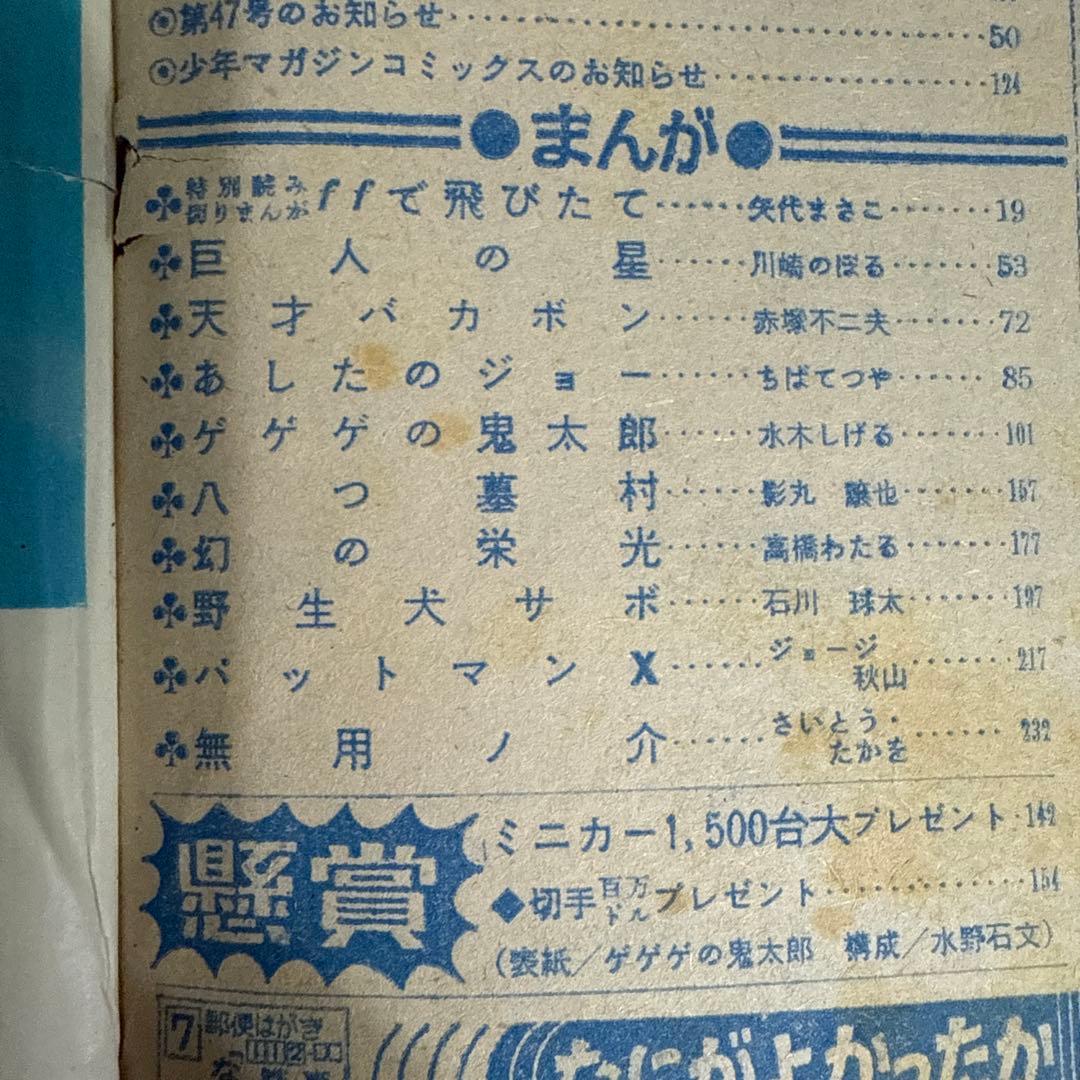 ◉第47号のお知らせ……50
◉少年マガジンコミックスのお知らせ……124
●まんが●
♣特別読み切りまんが ffで飛びたて……矢代まさこ……19
♣巨人の星……川崎のぼる……53
♣天才バカボン……赤塚不二夫……72
♣あしたのジョー……ちばてつや……85
♣ゲゲゲの鬼太郎……水木しげる……101
♣八つ墓村……影丸 譲也……157
♣幻の栄光……高橋わたる……177
♣野生犬サボ……石川 球太……197
♣パットマンX……ジョージ秋山……217
♣無用ノ介……さいとう・たかを……232
懸賞
ミニカー1,500台大プレゼント・142
◆切手百万ドルプレゼント……154
(表紙/ゲゲゲの鬼太郎 構成/水野石文)
7 郵便はがき
なにがよかったか